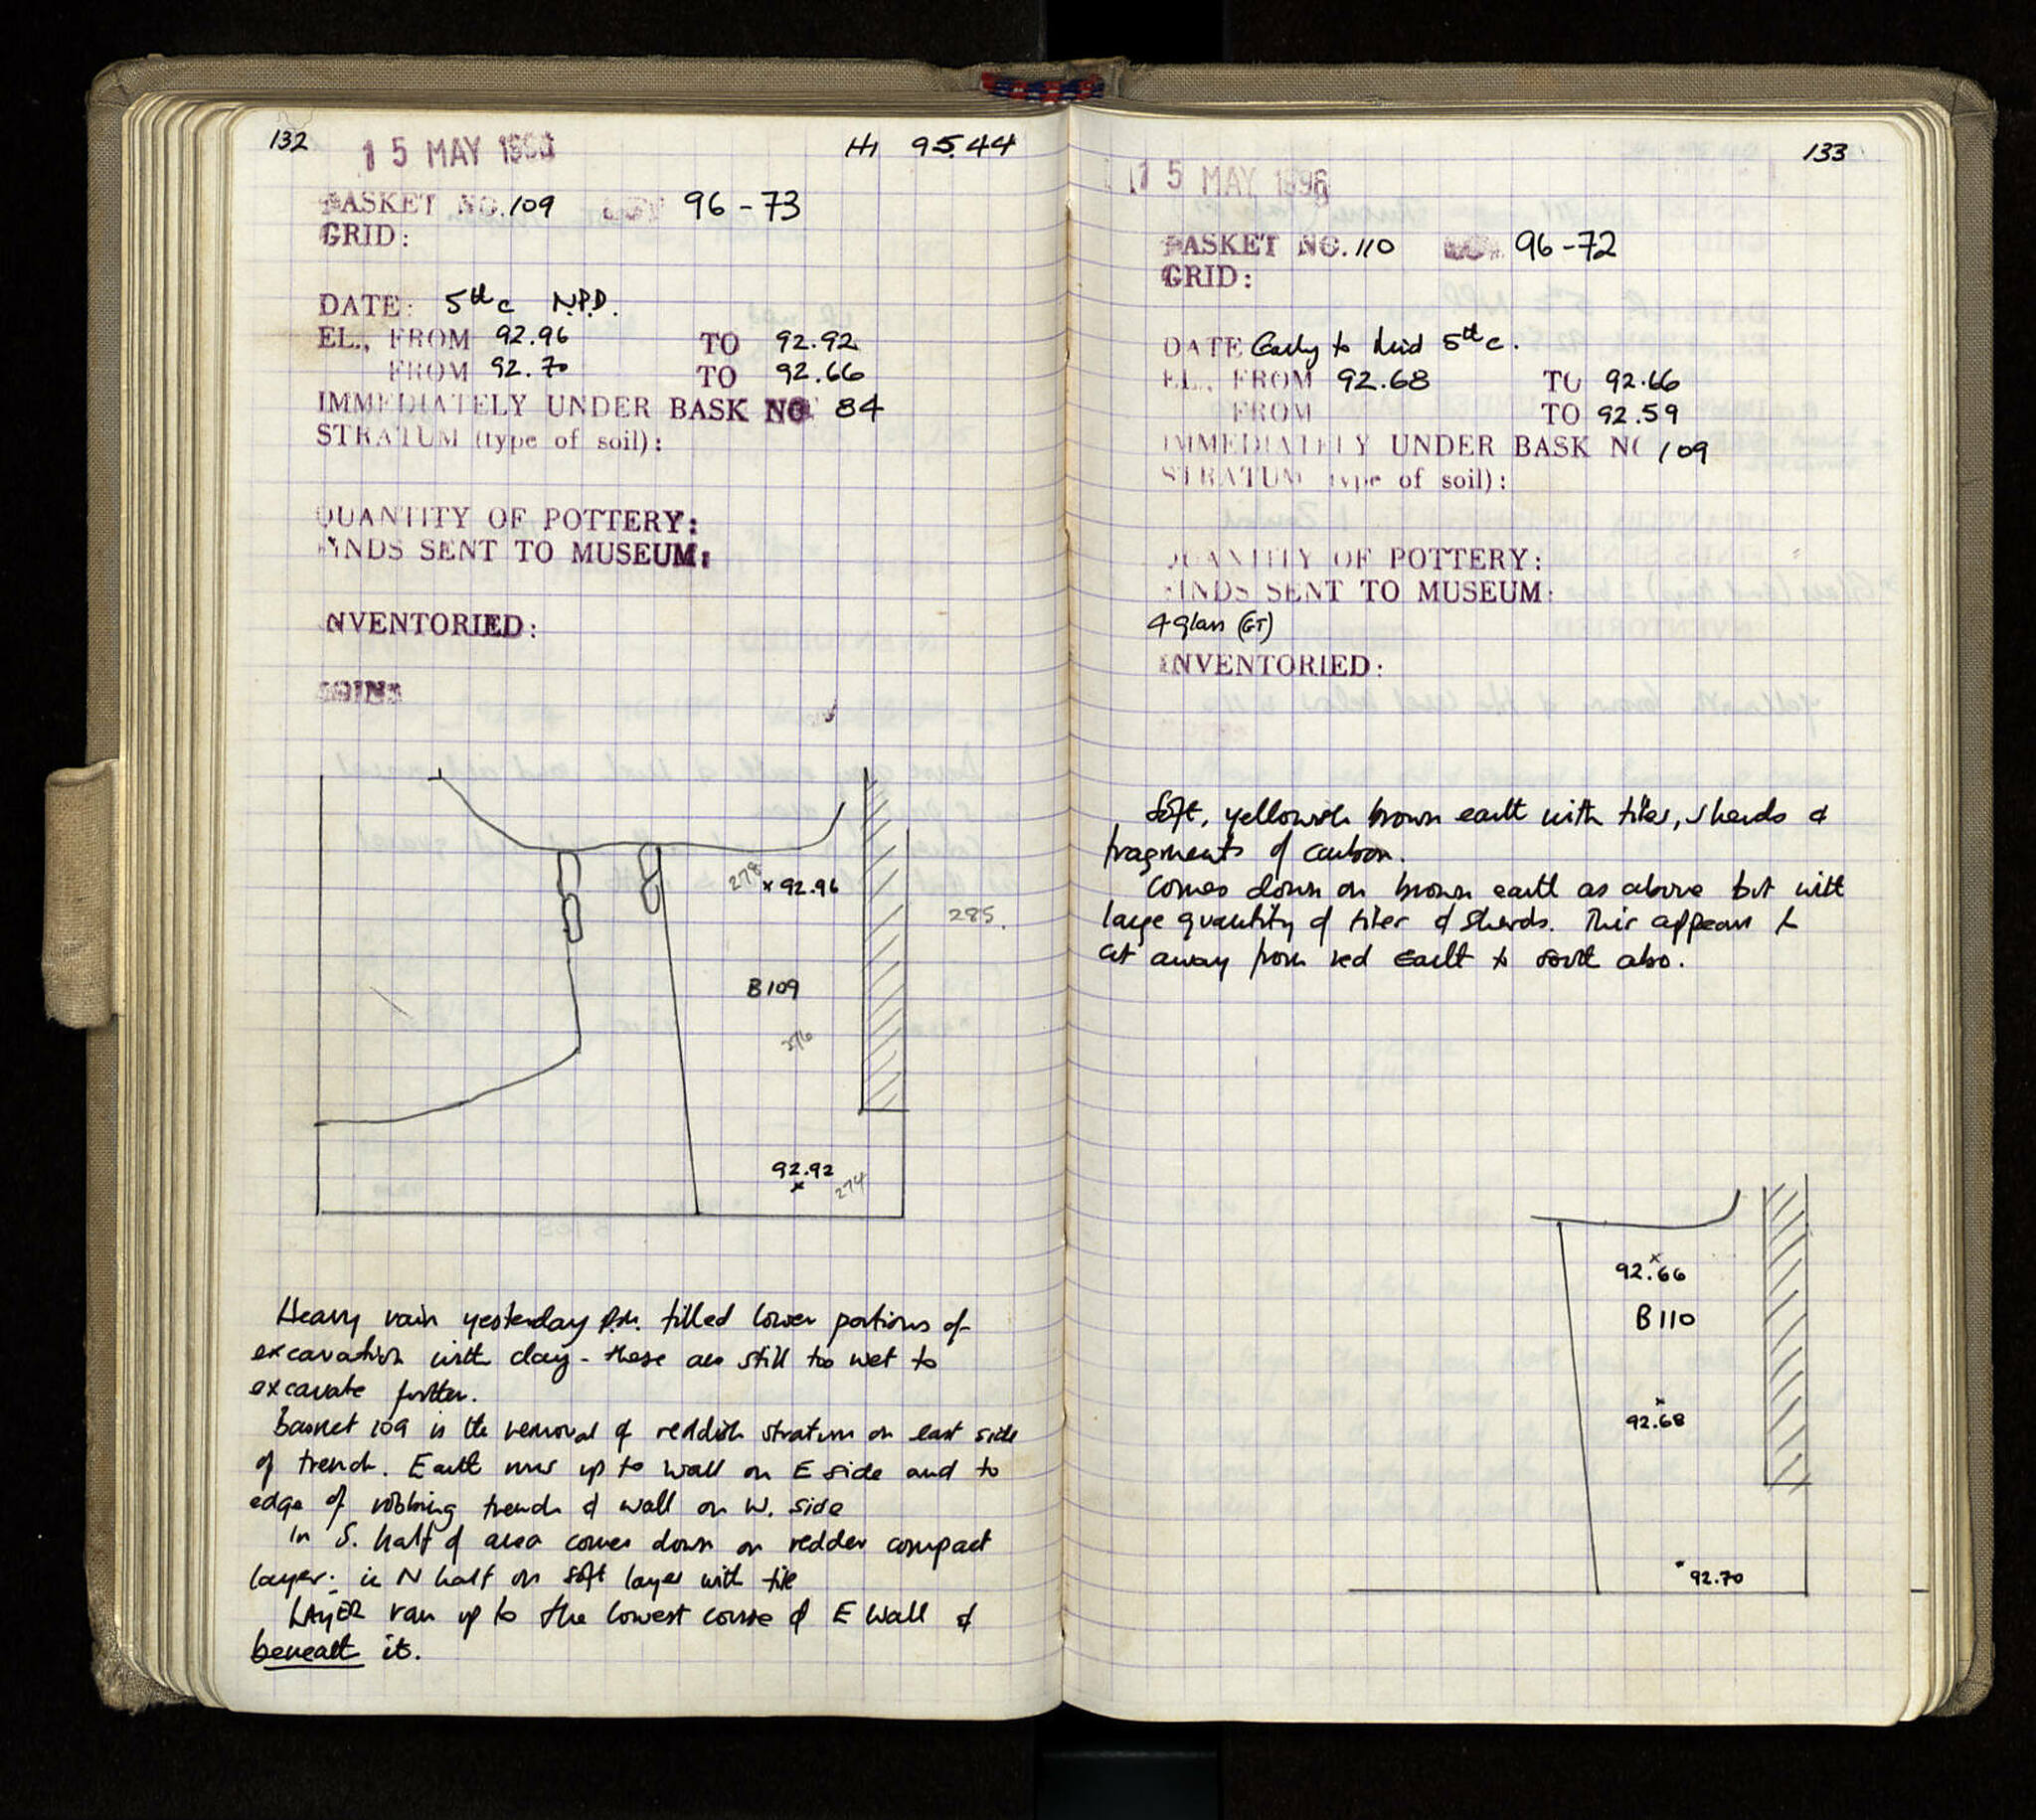 132
15 MAY 199
HI 95.44
BASKET NO. 109 96-73
GRID:
DATE: 5th c N.P.D.
EL., FROM 92.96 TO 92.92
FROM 92.70 TO 92.66
IMMEDIATELY UNDER BASK NO 84
STRATUM (type of soil):
QUANTITY OF POTTERY:
FINDS SENT TO MUSEUM:
INVENTORIED:
COIN:
278
x 92.96
285.
B109
276
92.92
x
274
Heavy rain yesterday p.m. filled lower portions of
excavation with clay - these are still too wet to
excavate further.
Basket 109 is the removal of reddish stratum on east side
of trench. Earth runs up to wall on E side and to
edge of robbing trench & wall on W. side
In S. half of area comes down on redder compact
layer; in N half on soft layer with tile
LAYER ran up to the lowest course of E Wall &
beneath it.
133
15 MAY 1996
BASKET NO. 110 96-72
GRID:
DATE Early to Mid 5th c.
EL., FROM 92.68 TO 92.66
FROM TO 92.59
IMMEDIATELY UNDER BASK NO 109
STRATUM (type of soil):
QUANTITY OF POTTERY:
FINDS SENT TO MUSEUM:
4 glass (GT)
INVENTORIED:
Soft, yellowish brown earth with tiles, sherds &
fragments of carbon.
Comes down on brown earth as above but with
large quantity of tiles & sherds. This appears to
cut away from red earth to south also.
x
92.66
B110
x
92.68
92.70